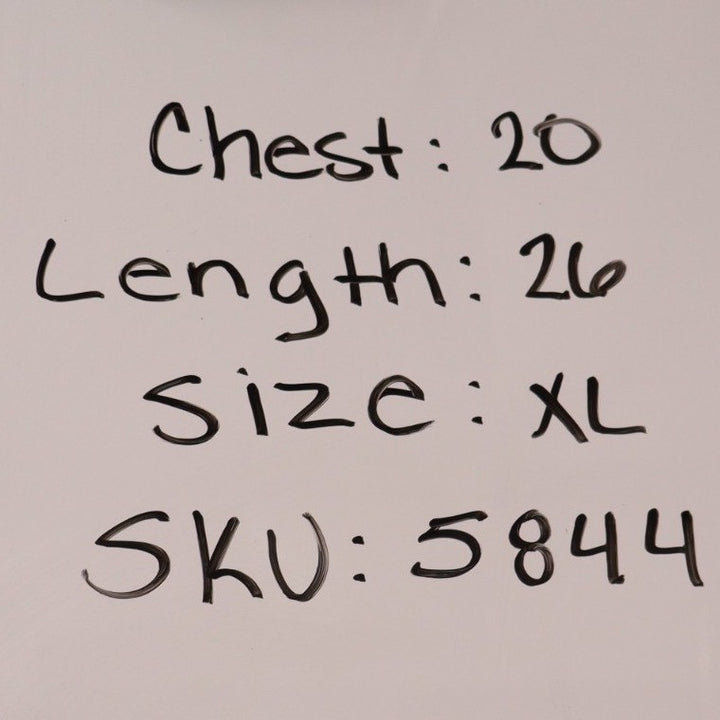 Chest: 20
Length: 26
Size: XL
SKU: 5844